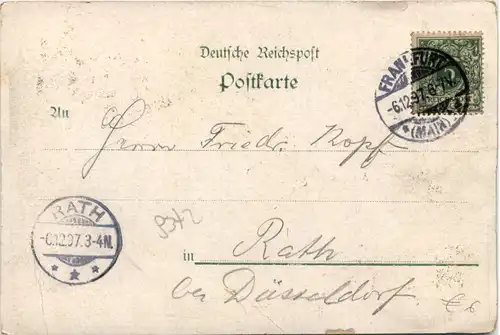 Deutsche Reichspost
Postkarte
FRANKFURT
-6.12.97. 6-7N.
*(MAIN)*
An
Herrn Friedr. Kopf
RATH
-6.12.97. 3-4N.
* * *
in Rath
bei Düsseldorf